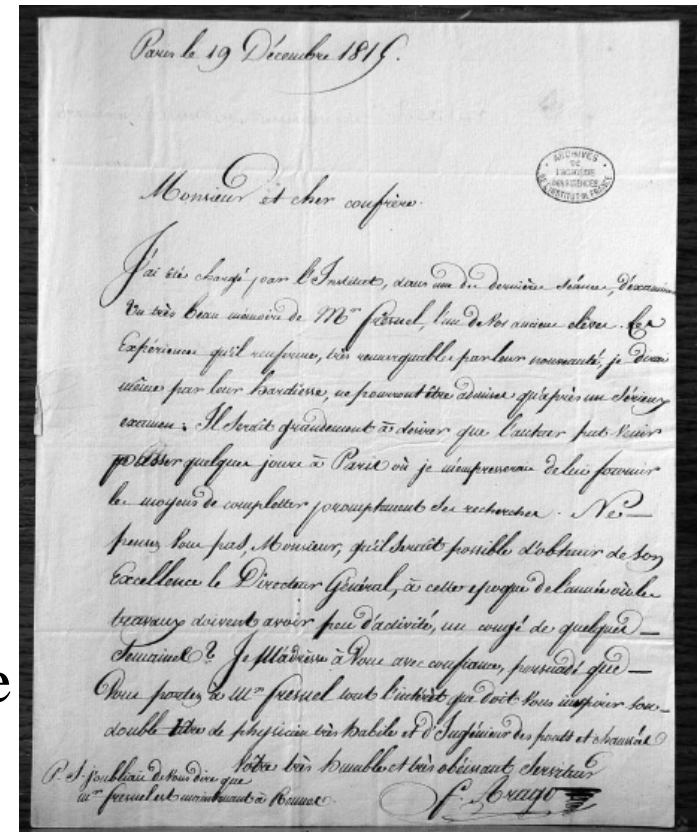 Paris le 19 Décembre 1815.
ARCHIVES
DE
L'ACADÉMIE
DES SCIENCES
DE L'INSTITUT DE FRANCE
Monsieur et cher confrère.
J'ai été chargé par l'Institut, dans une des dernières séances, d'examiner
Un très beau mémoire de Mr fresnel, l'un de Vos anciens élèves. Les
Expériences qu'il renferme, très remarquables par leur nouveauté, je dirai
même par leur hardiesse, ne pourront être admises qu'après un Sérieux
examen; Il Serait grandement à desirer que l'auteur put Venir
passer quelques jours à Paris où je m'empresserais de lui fournir
les moyens de completter promptement ses recherches. Ne
pensez Vous pas, Monsieur, qu'il Serait possible d'obtenir de Son
Excellence le Directeur Général, à cette epoque de l'année où les
travaux doivent avoir peu d'activité, un congé de quelques
Semaines? Je M'adresse à Vous avec confiance, persuadé que
Vous portez à Mr fresnel tout l'intérêt que doit Vous inspirer son
double titre de physicien très habile et d'Ingénieur des ponts et chaussées
Vôtre très humble et très obéissant Serviteur
f. Arago
P. S. j'oubliais de Vous dire que
Mr fresnel est maintenant à Rennes.
e